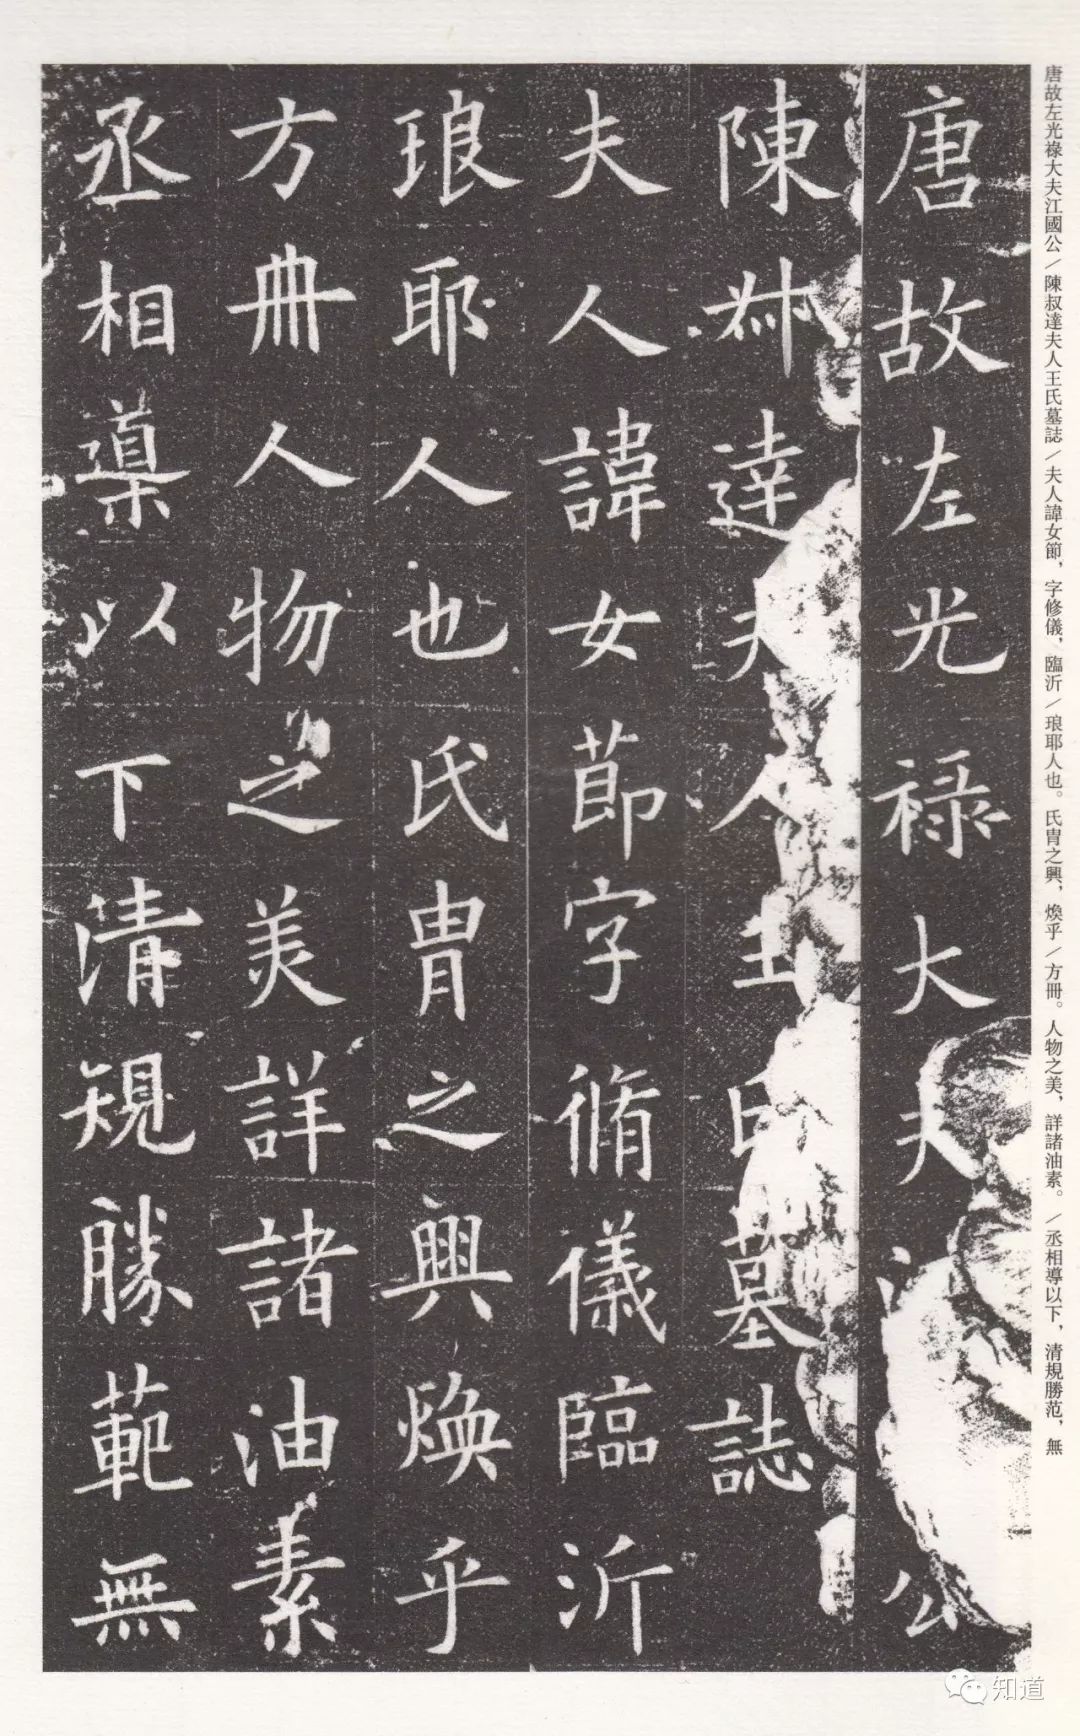 唐故左光祿大夫江國公／陳叔達夫人王氏墓誌／夫人諱女節，字修儀，臨沂／琅耶人也。氏胄之興，煥乎／方冊。人物之美，詳諸油素。／丞相導以下，清規勝范，無
唐故左光祿大夫公
陳叔達夫人王氏墓誌
夫人諱女節字脩儀臨沂
琅耶人也氏胄之興煥乎
方冊人物之美詳諸油素
丞相導以下清規勝範無
知道